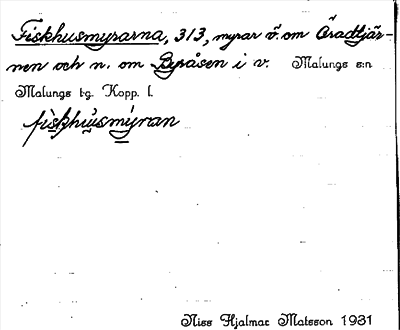 Fiskhusmyrarna, 313, myrar ö. om Öradtjär-
nen och n. om Byråsen i v. Malungs s:n
Malungs tg. Kopp. l.
fiskhusmýran
Niss Hjalmar Matsson 1931